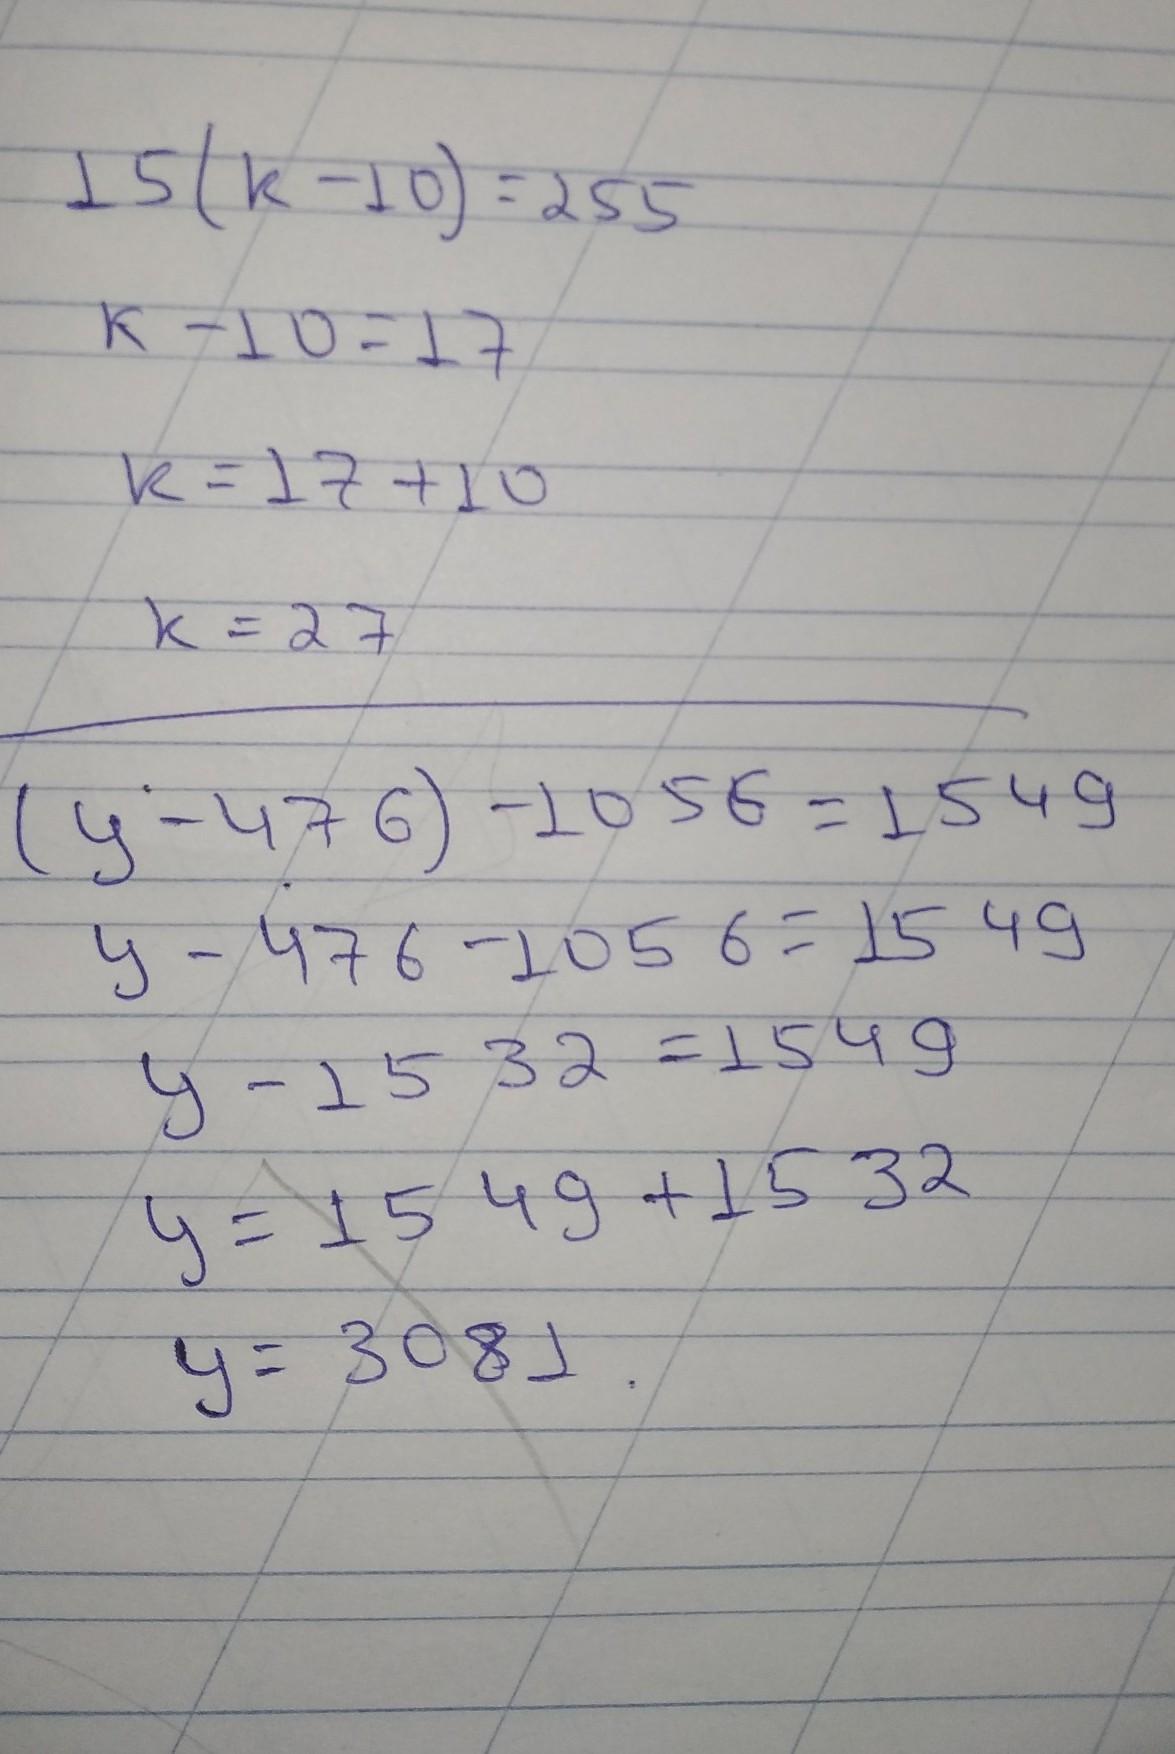 15(k-10)=255
k-10=17
k=17+10
k=27
(y-476)-1056=1549
y-476-1056=1549
y-1532=1549
y=1549+1532
y=3081.